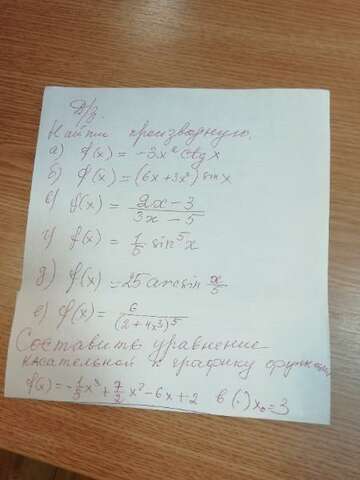 Д/з.
Найти производную.
а) f(x) = -3x² ctg x
б) f(x) = (6x + 3x²) sin x
в) f(x) = (2x - 3)/(3x - 5)
г) f(x) = 1/5 sin⁵ x
д) f(x) = 25 arcsin x/5
е) f(x) = 6/(2 + 4x³)⁵
Составить уравнение
касательной к графику функции
f(x) = -1/3 x³ + 7/2 x² - 6x + 2 в (·) x₀ = 3